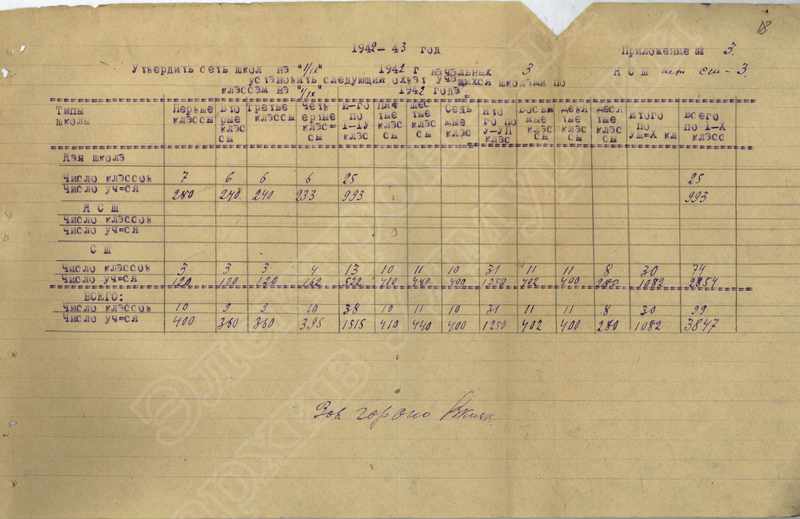 18
1942-43 год
Приложение № 3.
Утвердить сеть школ на "1/IX" 1942 г начальных 3 Н С Ш нет сш - 3.
установить следующий охват учащихся школами по
классам на "1/IX" 1942 года
Типы школы | Первые классы | Вторые классы | Третье классы | Четвертые классы | И-го по I-IУ клас | Пятые классы | Шестые классы | Седьмые клас | Итого по У-УП клас | Восьмые классы | Девятые классы | Десятые классы | итого по УШ-Х кл | всего по I-Х класс
Нач школа
Число классов 7 6 6 6 25 25
Число уч=ся 280 240 240 233 993 993
Н С Ш
Число классов
Число уч=ся
С Ш
Число классов 3 3 3 4 13 10 11 10 31 11 11 8 30 74
Число уч=ся 120 120 120 162 522 410 440 400 1250 402 400 280 1082 2854
ВСЕГО:
Число классов 10 9 9 10 38 10 11 10 31 11 11 8 30 99
Число уч=ся 400 360 360 395 1515 410 440 400 1250 402 400 280 1082 3847
Зав гороно